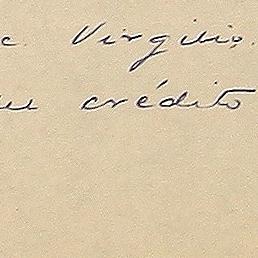 c. Virgilio.
crédito